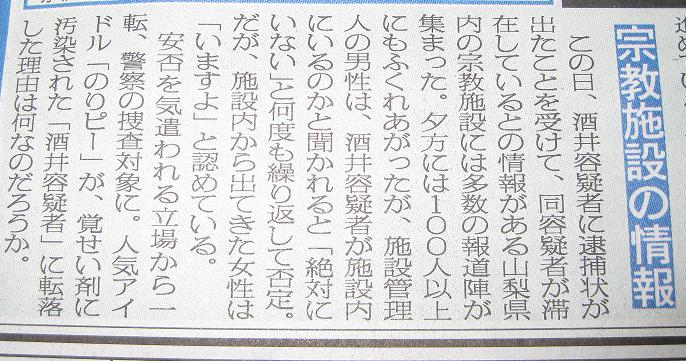 宗教施設の情報
この日、酒井容疑者に逮捕状が
出たことを受けて、同容疑者が滞
在しているとの情報がある山梨県
内の宗教施設には多数の報道陣が
集まった。夕方には100人以上
にもふくれあがったが、施設管理
人の男性は、酒井容疑者が施設内
にいるのかと聞かれると「絶対に
いない」と何度も繰り返して否定。
だが、施設内から出てきた女性は
「いますよ」と認めている。
安否を気遣われる立場から一
転、警察の捜査対象に。人気アイ
ドル「のりピー」が、覚せい剤に
汚染された「酒井容疑者」に転落
した理由は何なのだろうか。